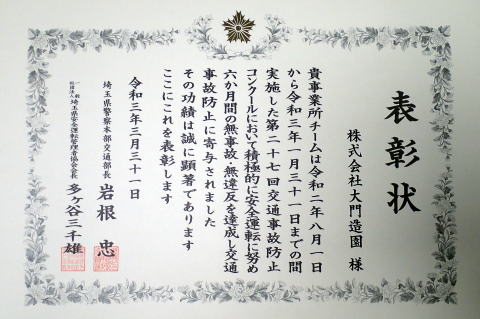 表彰状
株式会社大門造園 様
貴事業所チームは令和二年八月一日
から令和三年一月三十一日までの間
実施した第二十七回交通事故防止
コンクールにおいて積極的に安全運転に努め
六か月間の無事故・無違反を達成し交通
事故防止に寄与されました
その功績は誠に顕著であります
ここにこれを表彰します
令和三年三月三十一日
埼玉県警察本部交通部長 岩根 忠
一般社団法人 埼玉県安全運転管理者協会会長 多ヶ谷三千雄